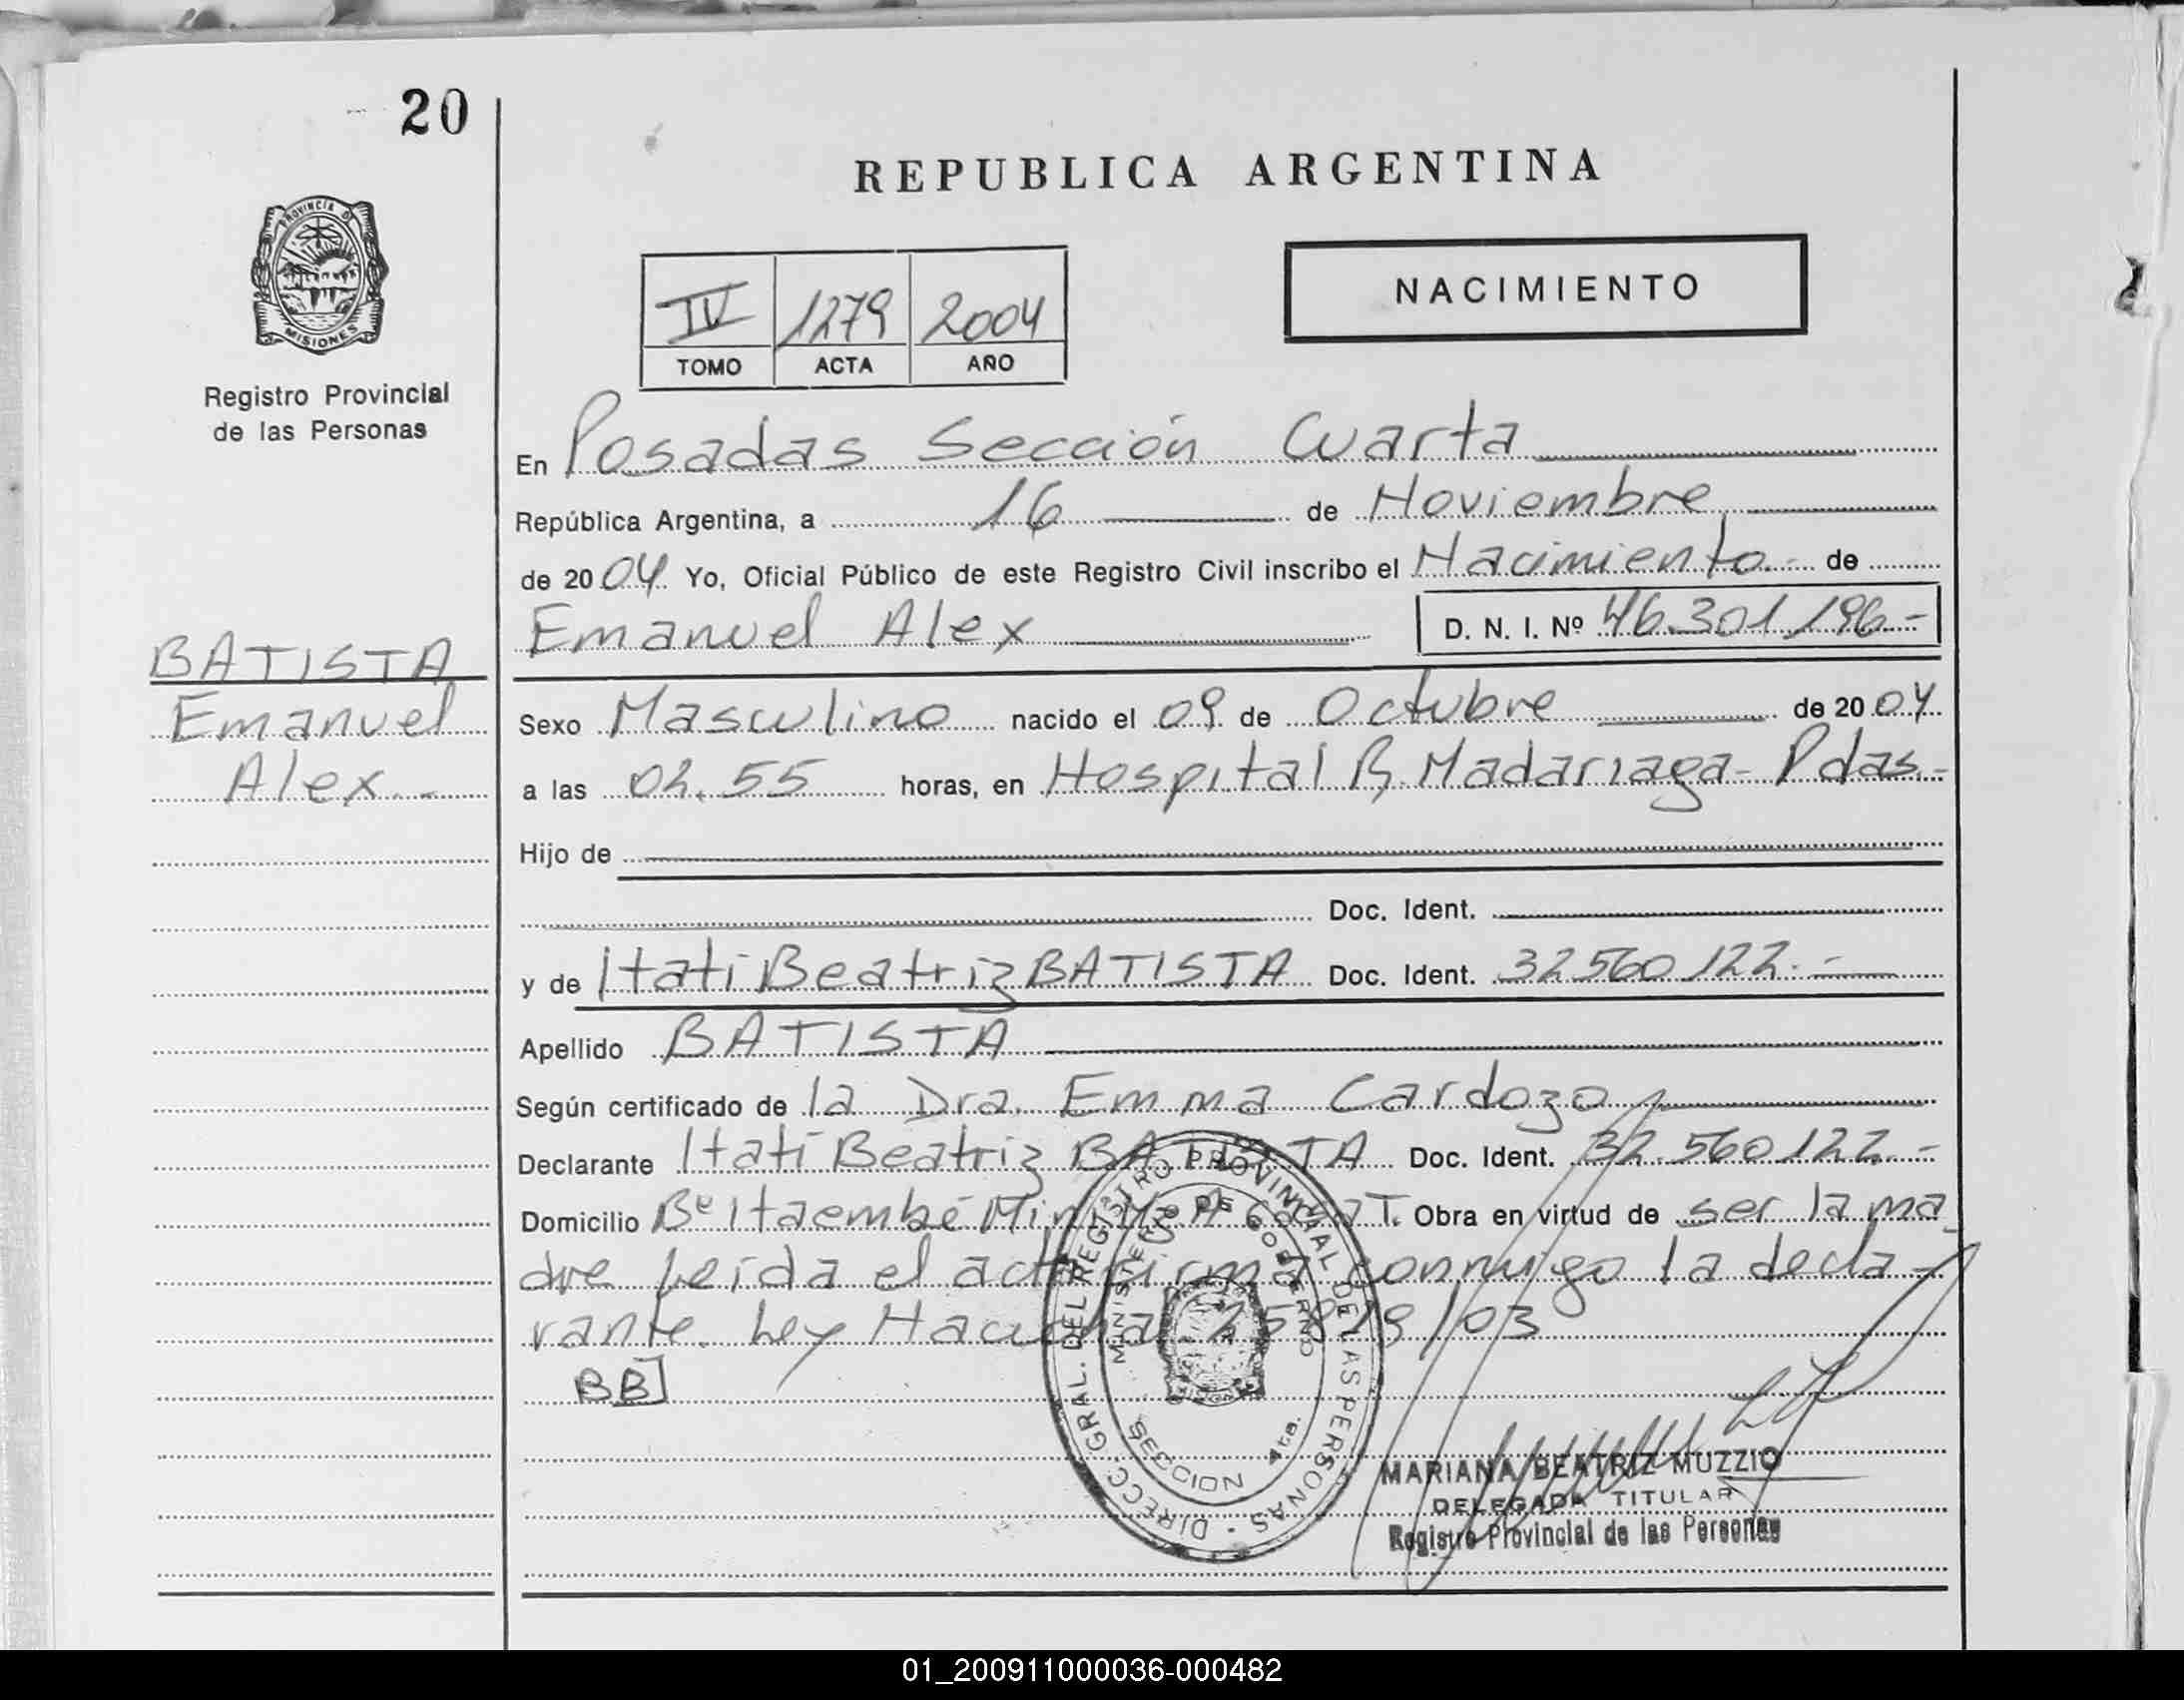 20
REPUBLICA ARGENTINA
PROVINCIA DE
MISIONES
Registro Provincial
de las Personas
NACIMIENTO
IV 1279 2004
TOMO ACTA AÑO
En Posadas Sección Cuarta
República Argentina, a 16 de Noviembre
de 2004 Yo, Oficial Público de este Registro Civil inscribo el Nacimiento.- de
Emanuel Alex D. N. I. Nº 46.301.196.-
BATISTA
Emanuel
Alex.-
Sexo Masculino nacido el 09 de Octubre de 2004
a las 02.55 horas, en Hospital R. Madariaga- Pdas.-
Hijo de
Doc. Ident.
y de Itatí Beatriz BATISTA Doc. Ident. 32.560.122.-
Apellido BATISTA
Según certificado de la Dra. Emma Cardozo
Declarante Itatí Beatriz BATISTA Doc. Ident. 32.560.122.-
Domicilio Bº Itaembé Miní Obra en virtud de ser la ma
dre Leída el acta firma conmigo la decla-
rante. Ley Nacional 25819/03
BB]
DIRECC. GRAL. DEL REGISTRO PROVINCIAL DE LAS PERSONAS -
MINISTERIO DE GOBIERNO
SECCION 4ta.
MARIANA BEATRIZ MUZZIO
DELEGADA TITULAR
Registro Provincial de las Personas
01_200911000036-000482